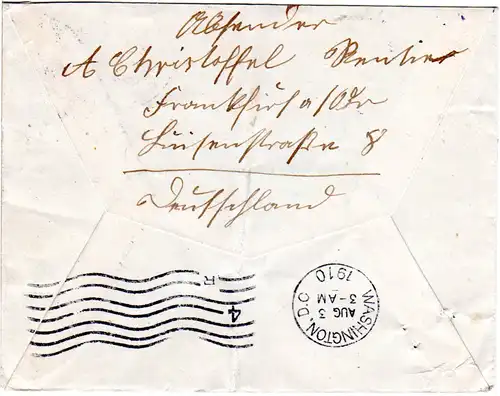 Absender
A Christoffel Rentier
Frankfurt a/Oder
Luisenstraße 8
Deutschland
R
4
WASHINGTON, D.C.
AUG 3
3-AM
1910